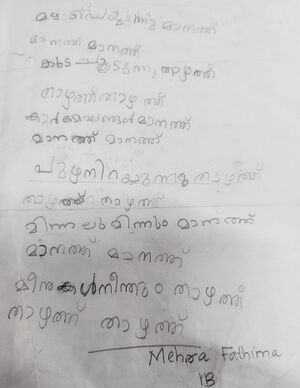 മഴ പെയ്യുന്നു മാനത്ത്
മാനത്ത് മാനത്ത്
കുട ചൂടുന്നു താഴത്ത്
താഴത്ത് താഴത്ത്
കാർമേഘങ്ങൾ മാനത്ത്
മാനത്ത് മാനത്ത്
പുഴ നിറയുന്നു താഴത്ത്
താഴത്ത് താഴത്ത്
മിന്നലു മിന്നും മാനത്ത്
മാനത്ത് മാനത്ത്
മീനുകൾ നീന്തും താഴത്ത്
താഴത്ത് താഴത്ത്
Mehra Fathima
1B